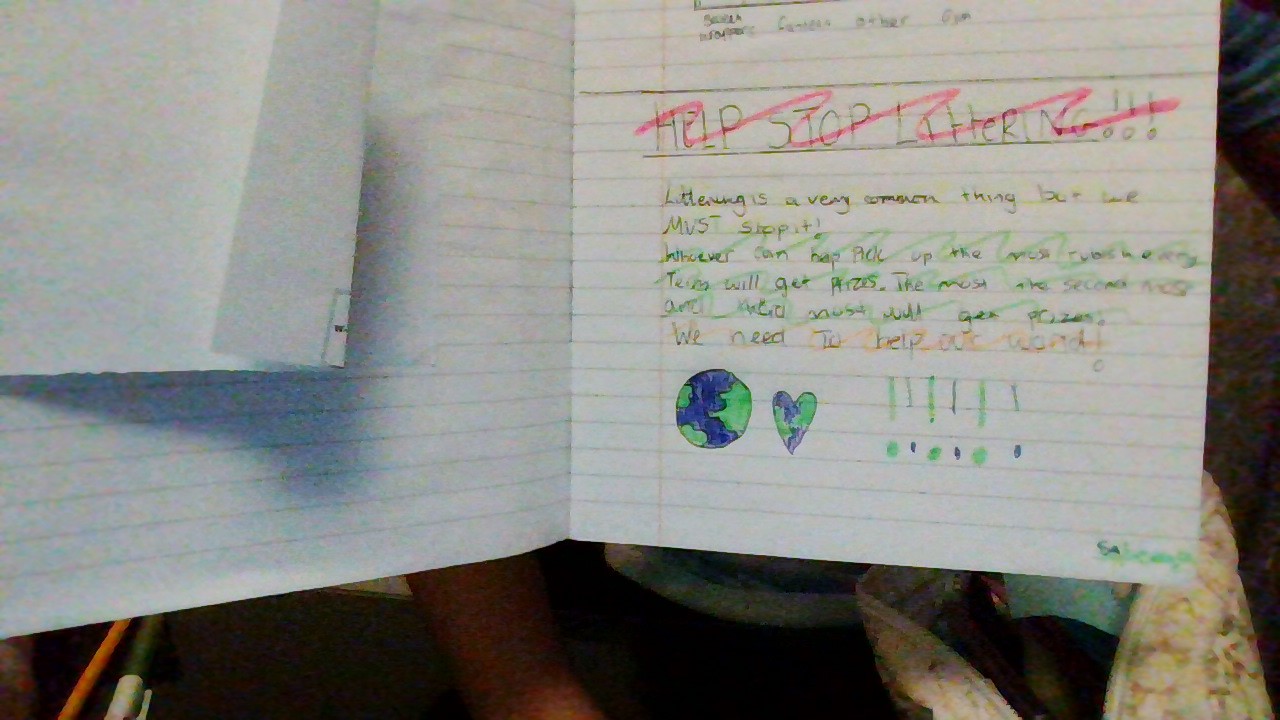 wrappers Canteen other Gym
HELP STOP LitteRING!!!
Littering is a very common thing but we
MUST stop it!
Whoever can help Pick up the most rubish every
Term will get prizes. The most the second most
and third most will get prizes.
We need To help our world!
! ! ! ! ! !